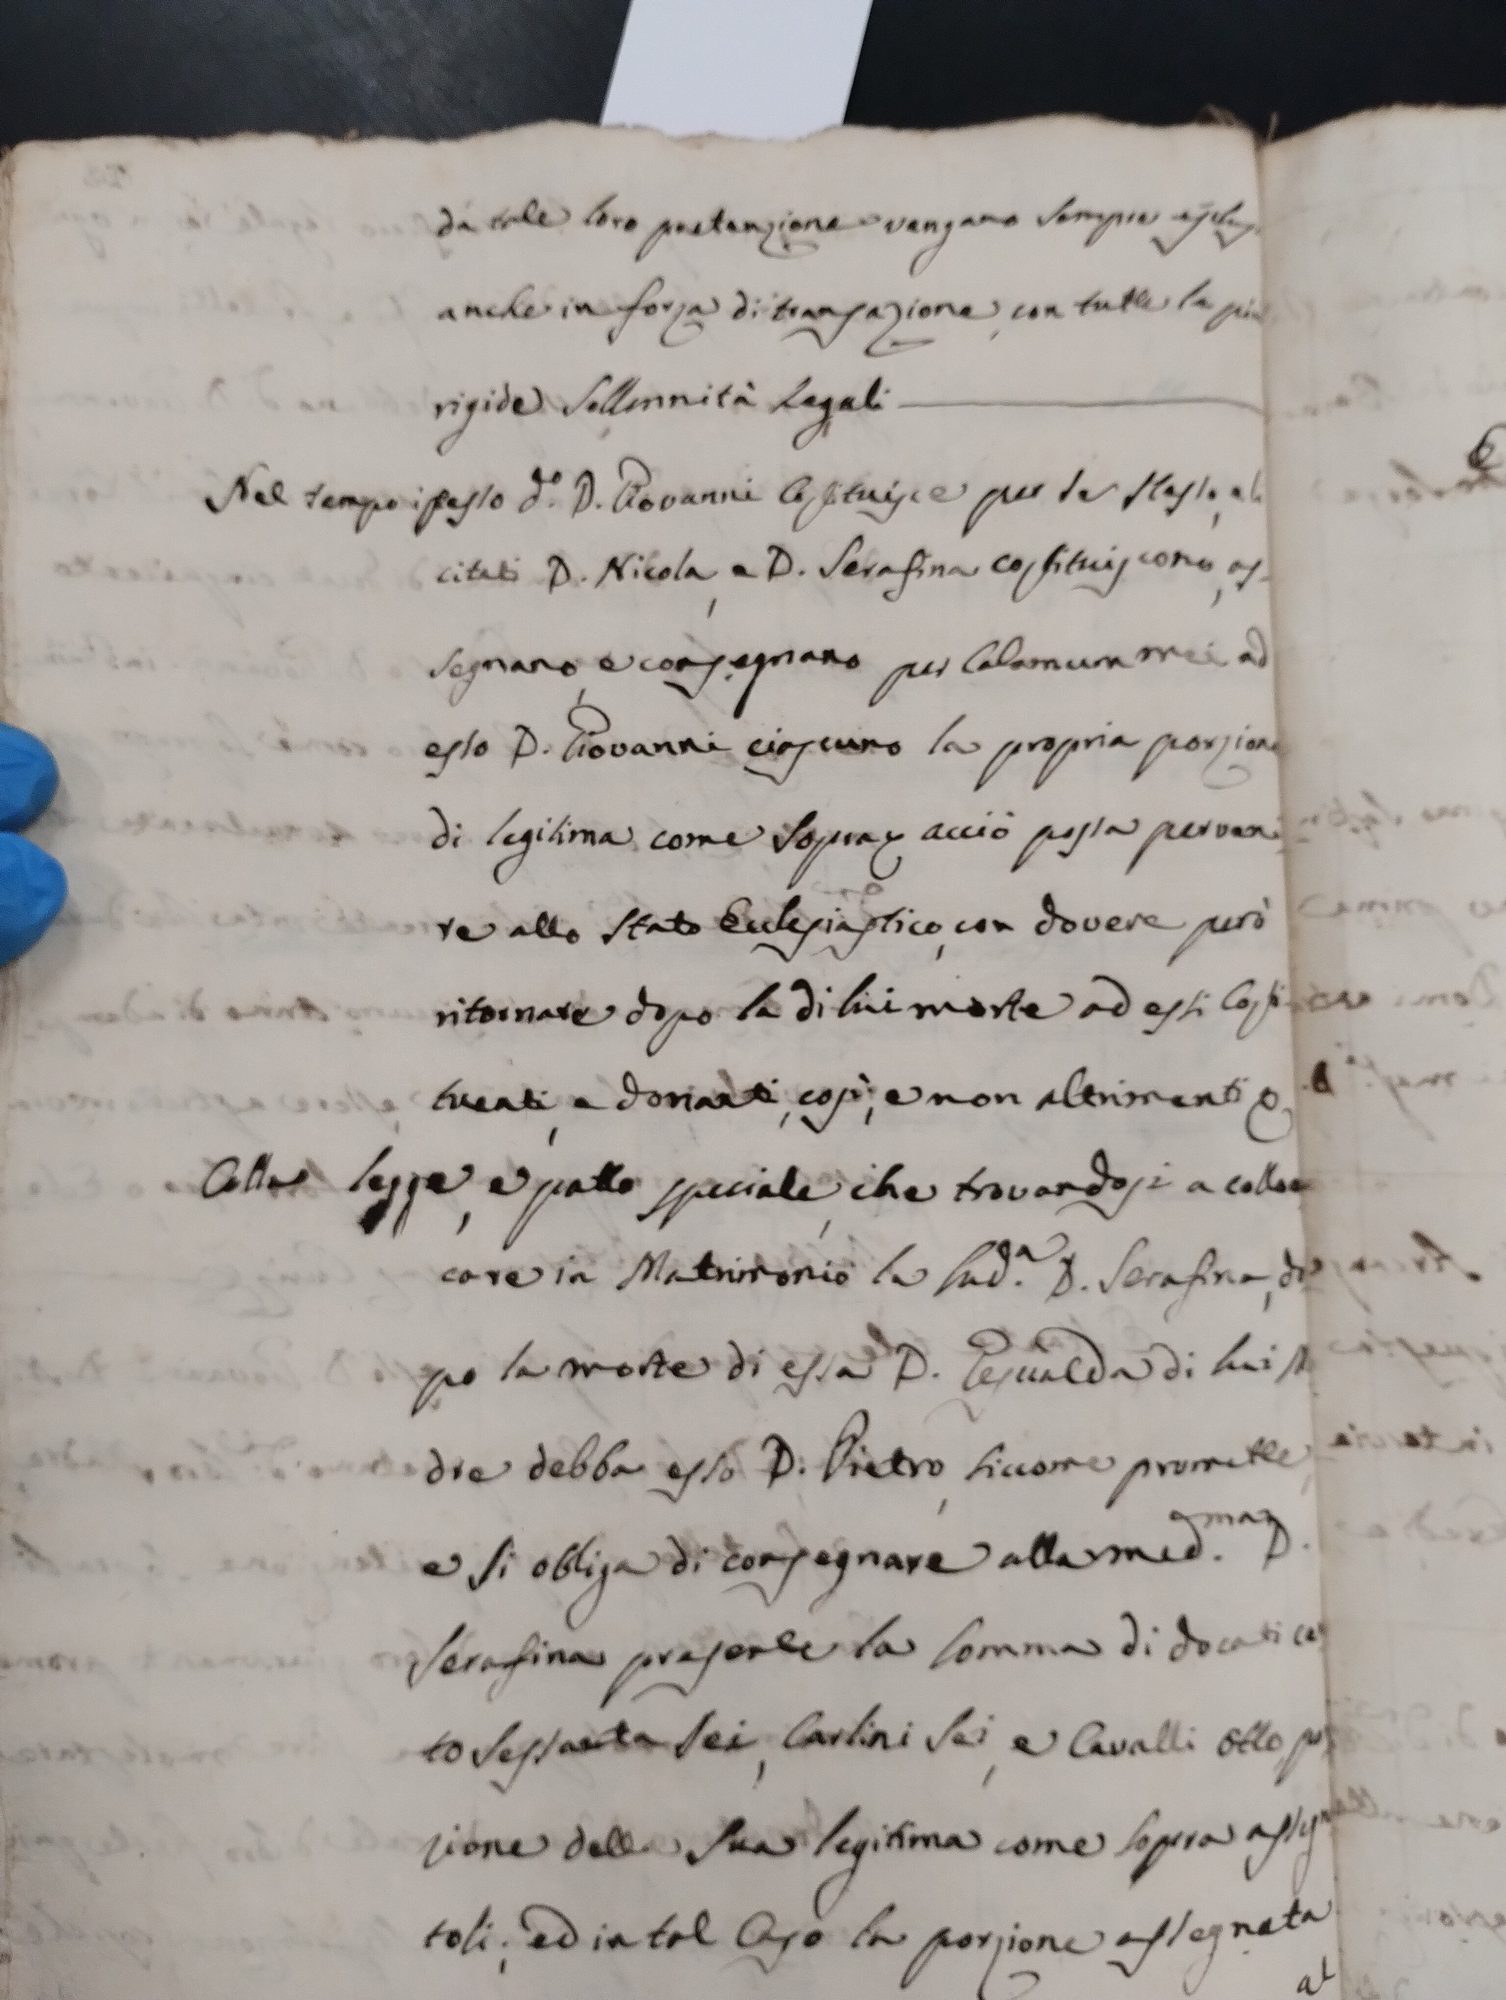 da tale loro pretenzione vengano sempre esclus
anche in forza di transazione, con tutte le più
rigide sollennità Legali
Nel tempo istesso d.º D. Giovanni Costituisce per se stesso, e li
citati D. Nicola, e D. Serafina costituiscono, as-
segnano, e consegnano per Calamum mei ad
esso D. Giovanni ciascuno la propria porzione
di legitima come sopra acciò possa perveni
re allo stato Ecclesiastico, con dovere però
ritornare dopo la di lui morte ad essi Costi
tuenti, e donanti, così, e non altrimenti
Colla legge, e patto speciale, che trovandosi a collo
care in Matrimonio la sud.ª D. Serafina, do
po la morte di essa D. Gesualda di lui M
dre debba esso D. Pietro, siccome promette,
e si obliga di consegnare alla med.ma D.
Serafina presente la somma di docati cen
to sessanta sei, Carlini sei, e Cavalli otto por
zione della sua legitima come sopra assegna
toli; ed in tal Caso la porzione assegnata
al